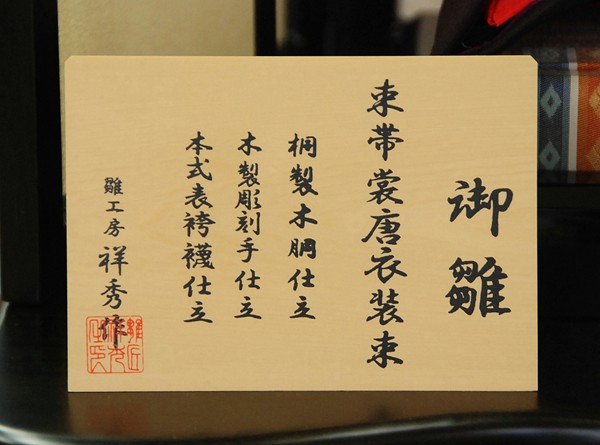 御雛
束帯裳唐衣装束
桐製木胴仕立
木製彫刻手仕立
本式表袴襪仕立
雛工房 祥秀作